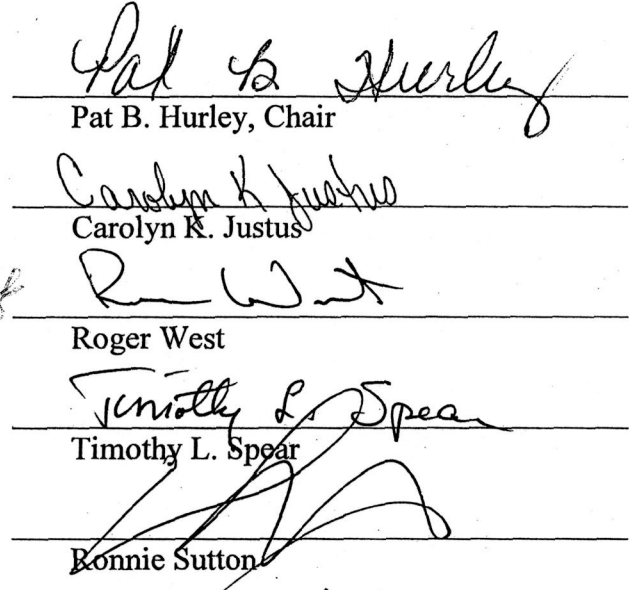 Pat B Hurley
Pat B. Hurley, Chair
Carolyn K Justus
Carolyn K. Justus
Roger West
Timothy L. Spear
Timothy L. Spear
Ronnie Sutton